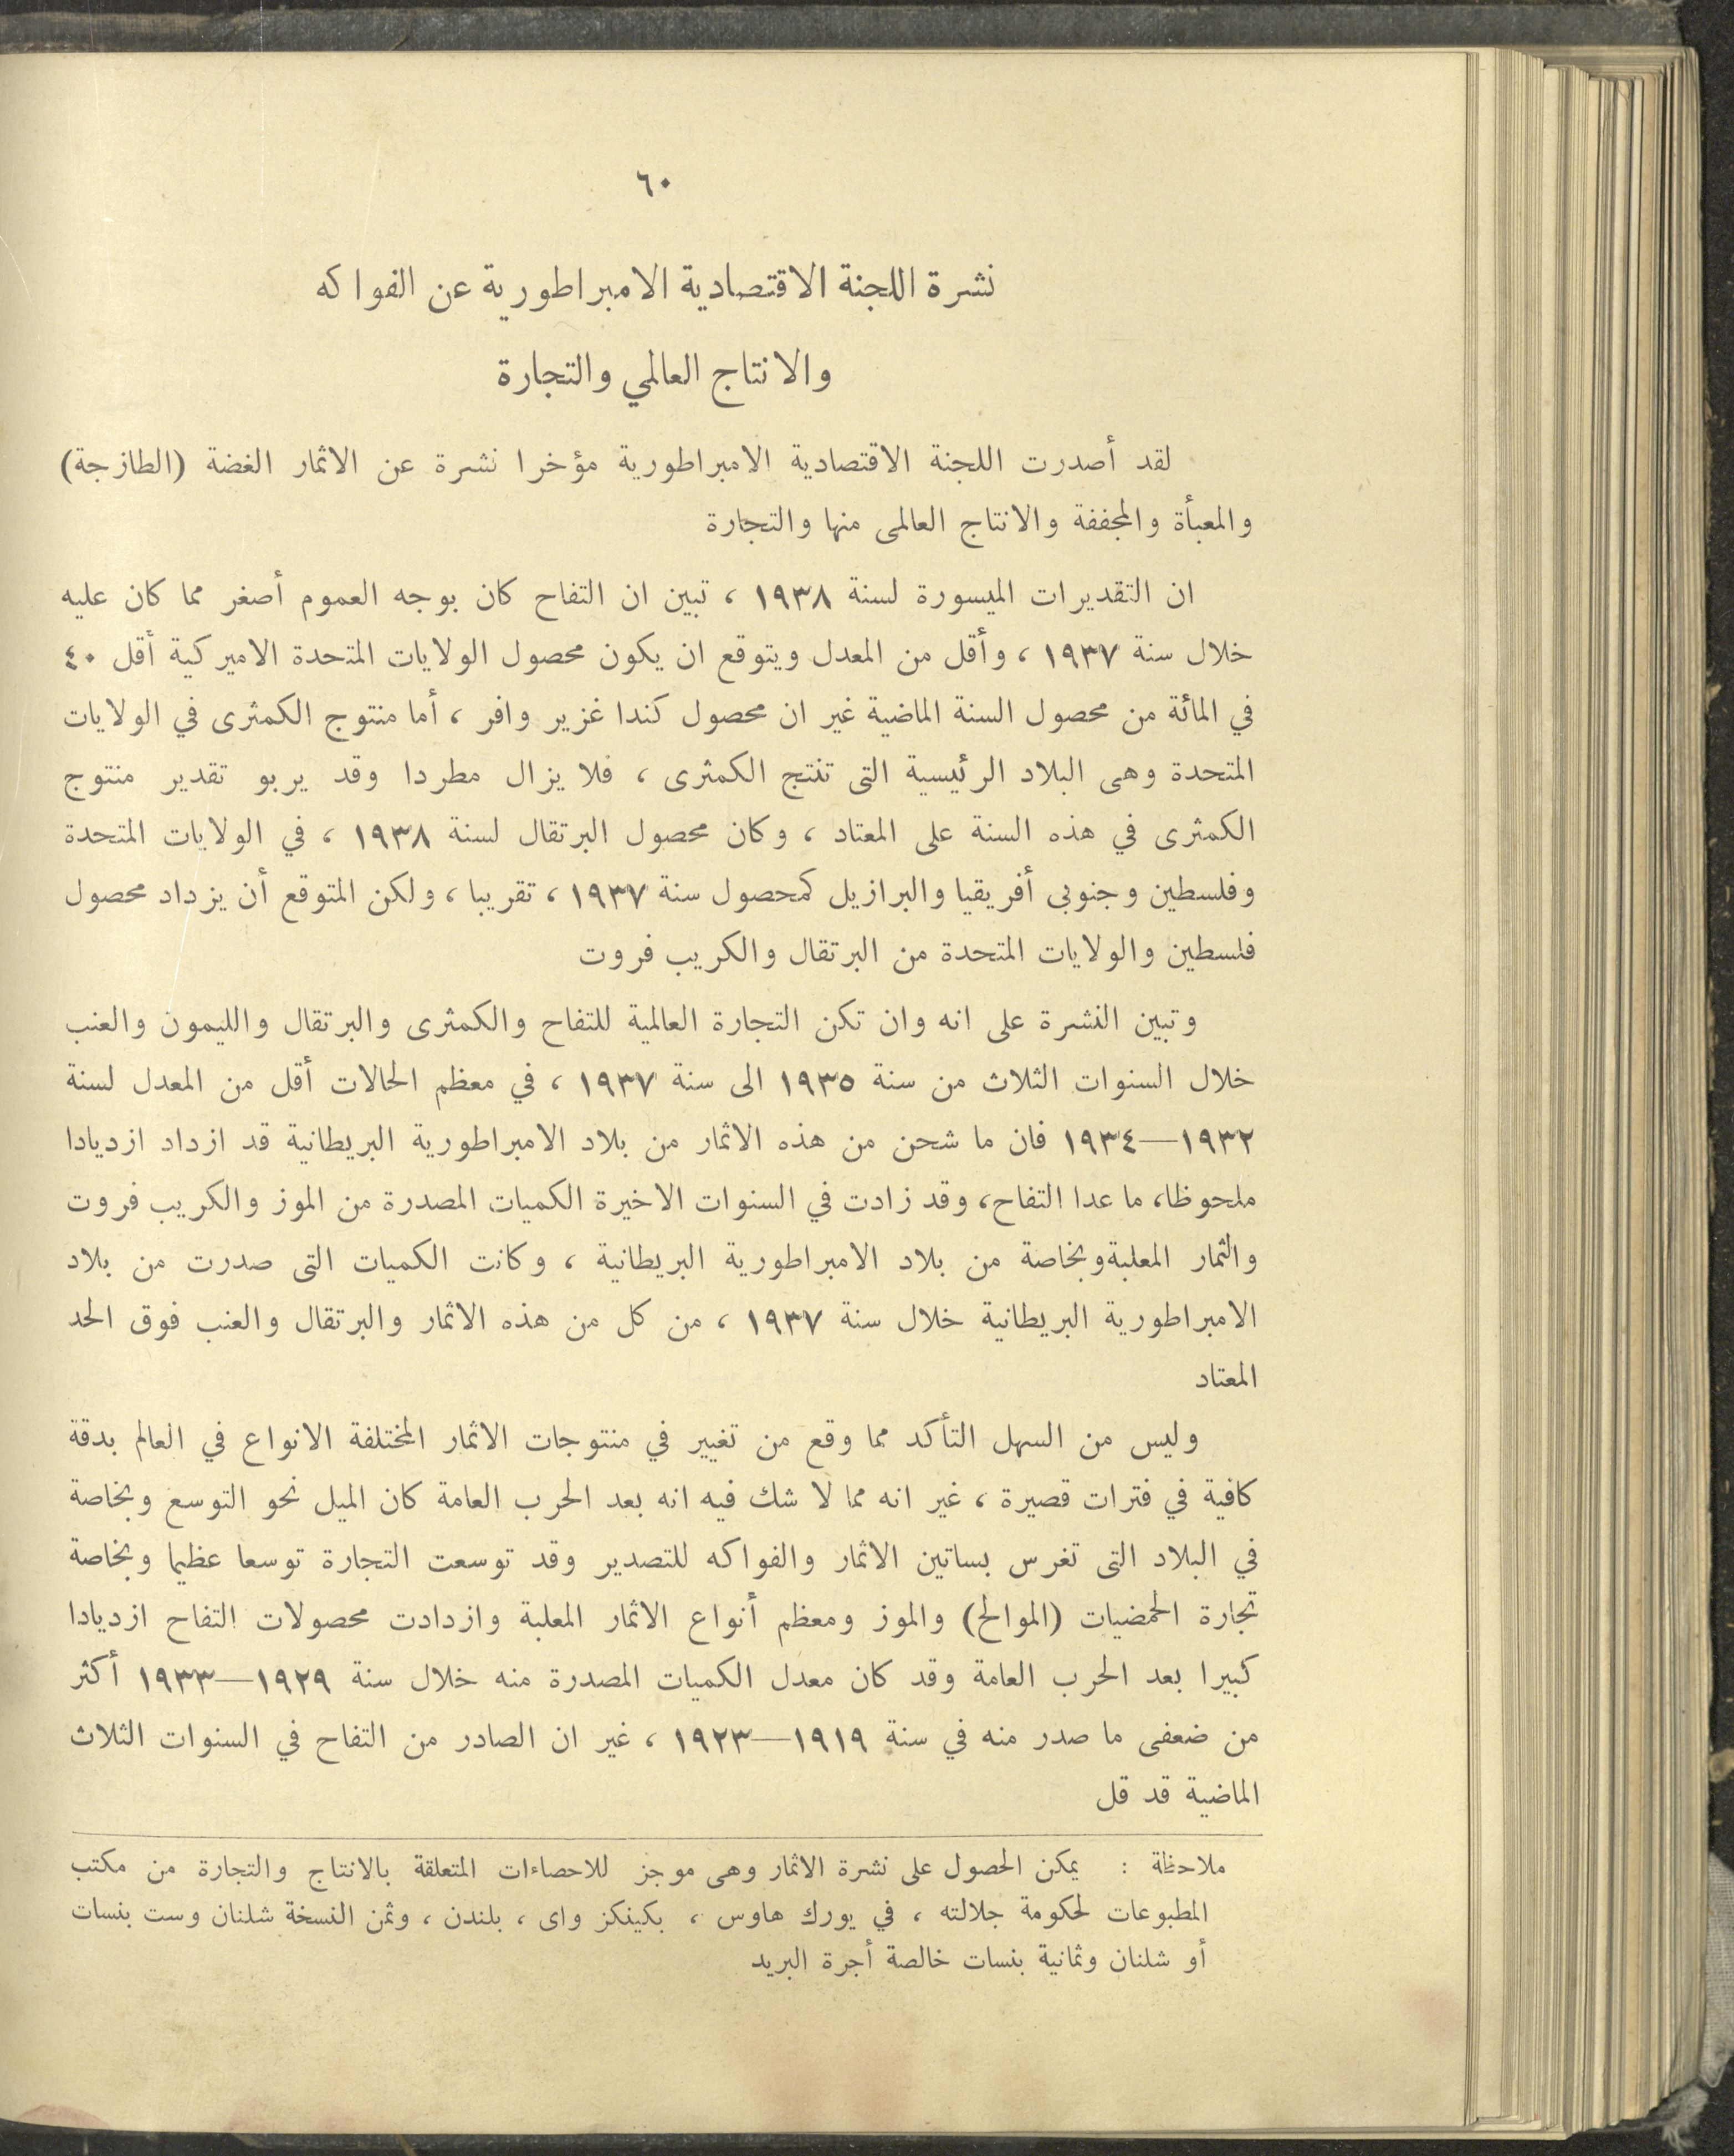 ٦٠
نشرة اللجنة الاقتصادية الامبراطورية عن الفواكه
والانتاج العالمي والتجارة
لقد أصدرت اللجنة الاقتصادية الامبراطورية مؤخرا نشرة عن الاثمار الغضة (الطازجة)
والمعبأة والمجففة والانتاج العالمى منها والتجارة
ان التقديرات الميسورة لسنة ١٩٣٨ ، تبين ان التفاح كان بوجه العموم أصغر مما كان عليه
خلال سنة ١٩٣٧ ، وأقل من المعدل ويتوقع ان يكون محصول الولايات المتحدة الاميركية أقل ٤٠
في المائة من محصول السنة الماضية غير ان محصول كندا غزير وافر ، أما منتوج الكمثرى في الولايات
المتحدة وهى البلاد الرئيسية التى تنتج الكمثرى ، فلا يزال مطردا وقد يربو تقدير منتوج
الكمثرى في هذه السنة على المعتاد ، وكان محصول البرتقال لسنة ١٩٣٨ ، في الولايات المتحدة
وفلسطين وجنوبى أفريقيا والبرازيل كمحصول سنة ١٩٣٧ ، تقريبا ، ولكن المتوقع أن يزداد محصول
فلسطين والولايات المتحدة من البرتقال والكريب فروت
وتبين النشرة على انه وان تكن التجارة العالمية للتفاح والكمثرى والبرتقال والليمون والعنب
خلال السنوات الثلاث من سنة ١٩٣٥ الى سنة ١٩٣٧ ، في معظم الحالات أقل من المعدل لسنة
١٩٣٢—١٩٣٤ فان ما شحن من هذه الاثمار من بلاد الامبراطورية البريطانية قد ازداد ازديادا
ملحوظا، ما عدا التفاح، وقد زادت في السنوات الاخيرة الكميات المصدرة من الموز والكريب فروت
والثمار المعلبةوبخاصة من بلاد الامبراطورية البريطانية ، وكانت الكميات التى صدرت من بلاد
الامبراطورية البريطانية خلال سنة ١٩٣٧ ، من كل من هذه الاثمار والبرتقال والعنب فوق الحد
المعتاد
وليس من السهل التأكد مما وقع من تغيير في منتوجات الاثمار المختلفة الانواع في العالم بدقة
كافية في فترات قصيرة ، غير انه مما لا شك فيه انه بعد الحرب العامة كان الميل نحو التوسع وبخاصة
في البلاد التى تغرس بساتين الاثمار والفواكه للتصدير وقد توسعت التجارة توسعا عظيما وبخاصة
تجارة الحمضيات (الموالح) والموز ومعظم أنواع الاثمار المعلبة وازدادت محصولات التفاح ازديادا
كبيرا بعد الحرب العامة وقد كان معدل الكميات المصدرة منه خلال سنة ١٩٢٩—١٩٣٣ أكثر
من ضعفى ما صدر منه في سنة ١٩١٩—١٩٢٣ ، غير ان الصادر من التفاح في السنوات الثلاث
الماضية قد قل
ملاحظة : يمكن الحصول على نشرة الاثمار وهى موجز للاحصاءات المتعلقة بالانتاج والتجارة من مكتب
المطبوعات لحكومة جلالته ، في يورك هاوس ، بكينكز واى ، بلندن ، وثمن النسخة شلنان وست بنسات
أو شلنان وثمانية بنسات خالصة أجرة البريد